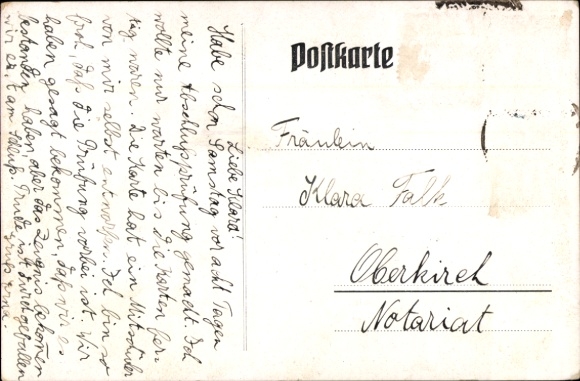 Liebe Klara!
Habe schon Samstag vor acht Tagen
meine Abschlussprüfung gemacht. Ich
wollte nur warten bis die Karten fer-
tig waren. Die Karte hat ein Mitschüler
von mir selbst entworfen. Ich bin so
froh, daß die Prüfung vorbei ist. Wir
haben gesagt bekommen, daß wir es
bestanden haben, aber das Zeugnis bekommen
wir erst am Schluß. Trude ist durchgefallen
Gruß
Postkarte
Fräulein
Klara Falk
Oberkirch
Notariat